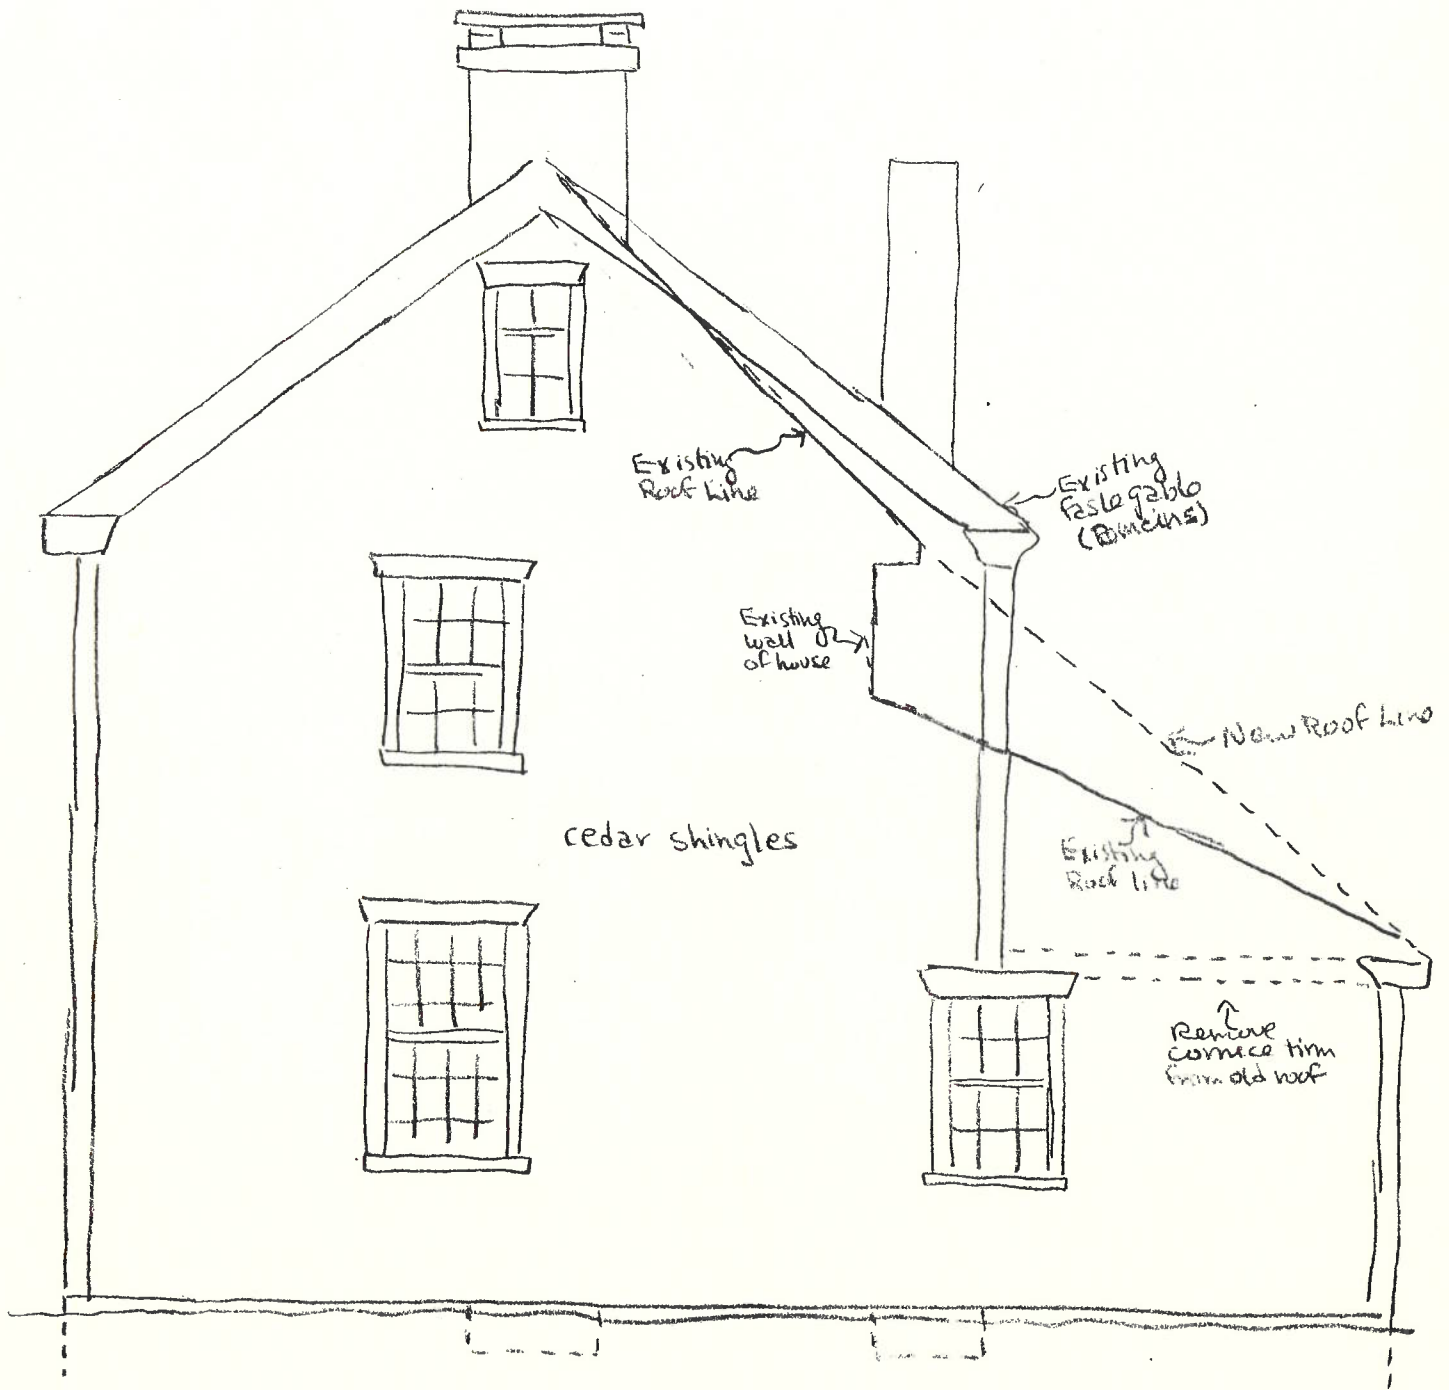 Existing
Roof Line
Existing
False gable
(Remains)
Existing
wall
of house
New Roof Line
cedar shingles
Existing
Roof line
Remove
cornice tirm
from old roof